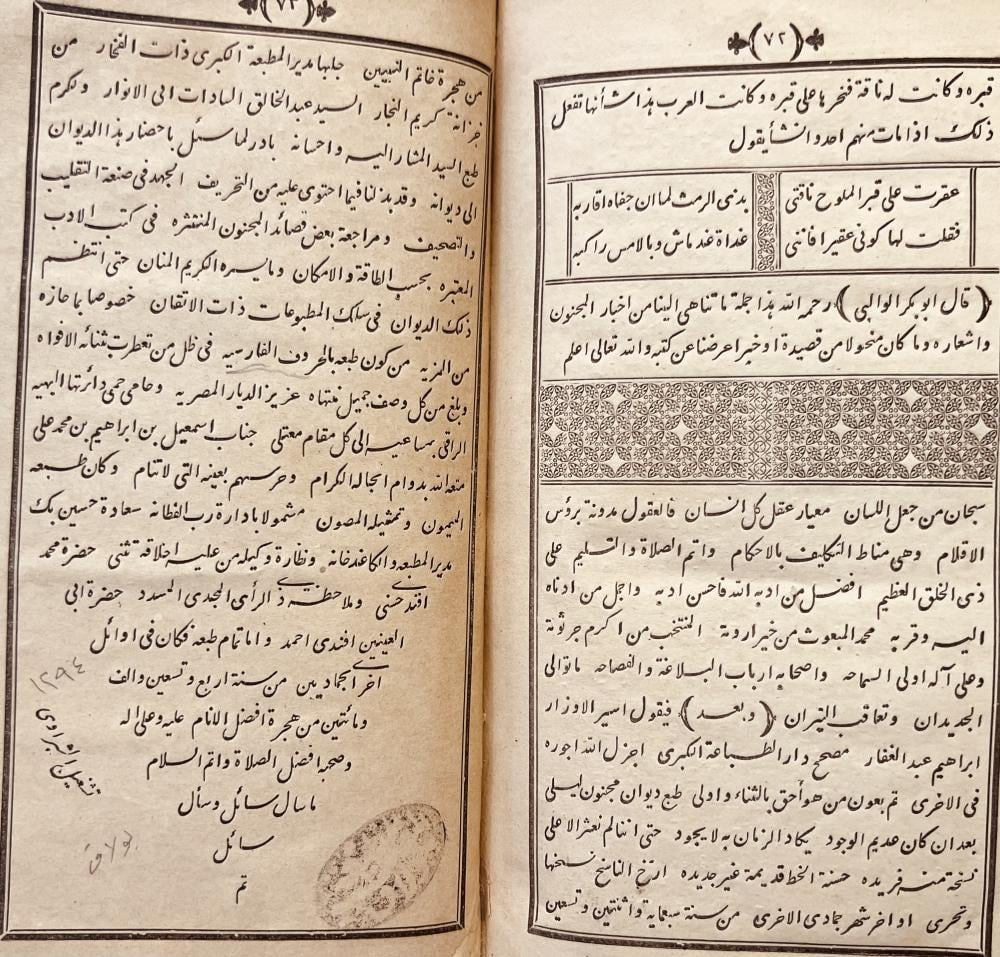 ﴿٧٢﴾
قبره وكانت له ناقة فنحرها على قبره وكانت العرب هذا شأنها تفعل
ذلك اذا مات منهم احد وانشأ يقول
عقرت على قبر الملوح ناقتى بذى الرمث لما ان جفاه اقاربه
فقلت لها كونى عقيرا فاننى غداة غد ماش وبالامس راكبه
﴿قال ابو بكر الوالبى﴾ رحمه الله هذا جملة ما تناهى الينا من اخبار المجنون
واشعاره وما كان منحولا من قصيدة او خبر اعرضنا عن كتبه والله تعالى اعلم
سبحان من جعل اللسان معيار عقل كل انسان فالعقول مدونة برؤس
الاقلام وهى مناط التكليف بالاحكام واتم الصلاة والتسليم على
ذى الخلق العظيم افضل من ادبه الله فاحسن ادبه واجل من ادناه
اليه وقربه محمد المبعوث من خير ارومة المنتخب من اكرم جرثومة
وعلى آله اولى السماحه واصحابه ارباب البلاغة والفصاحه ما توالى
الجديدان وتعاقب النيران ﴿وبعد﴾ فيقول اسير الاوزار
ابراهيم عبد الغفار مصحح دار الطباعة الكبرى اجزل الله اجوره
فى الاخرى تم بعون من هو أحق بالثناء واولى طبع ديوان مجنون ليلى
بعد ان كان عديم الوجود يكاد الزمان به لا يجود حتى اننا لم نعثر الا على
نسخة منه فريده حسنة الخط قديمة غير جديده ارخ الناسخ نسخها
وتحرى اواخر شهر جمادى الاخرى من سنة سبعماية واثنتين وتسعين
﴿٧٣﴾
من هجرة خاتم النبيين جلبها مدير المطبعة الكبرى ذات الفخار من
خزانة كريم النجار السيد عبد الخالق السادات ابى الانوار ولكرم
طبع السيد المشار اليه واحسانه بادر لما سئل باحضار هذا الديوان
الى ديوانه وقد بذلنا فيما احتوى عليه من التحريف الجهد فى صنعة التقليب
والتصحيف ومراجعة بعض قصائد المجنون المنتثره فى كتب الادب
المعتبره بحسب الطاقة والامكان وما يسره الكريم المنان حتى انتظم
ذلك الديوان فى سلك المطبوعات ذات الاتقان خصوصا بما حازه
من المزيه من كون طبعه بالحروف الفارسيه فى ظل من تعطرت بثنائه الافواه
وبلغ من كل وصف جميل منتهاه عزيز الديار المصريه وحامى حمى دائرتها البهيه
الراقى بمساعيه الى كل مقام معتلى جناب اسمعيل بن ابراهيم بن محمد على
متعه الله بدوام انجاله الكرام وحرسهم بعينه التى لا تنام وكان طبعه
الميمون وتمثيله المصون مشمولا بادارة رب الفطانه سعادة حسين بك
مدير المطبعه والكاغدخانه ونظارة وكيله من عليه اخلاقه تثنى حضرة محمد
افندى حسنى وملاحظة ذى الرأى المجدى المسدد حضرة ابى
العينين افندى احمد واما تمام طبعه فكان فى اوائل
اخرى الجماديين من سنة اربع وتسعين والف
ومائتين من هجرة افضل الانام عليه وعلى اله
وصحبه افضل الصلاة واتم السلام
ما سال سائل وسأل
سائل
تم
١٢٩٤
بولاق